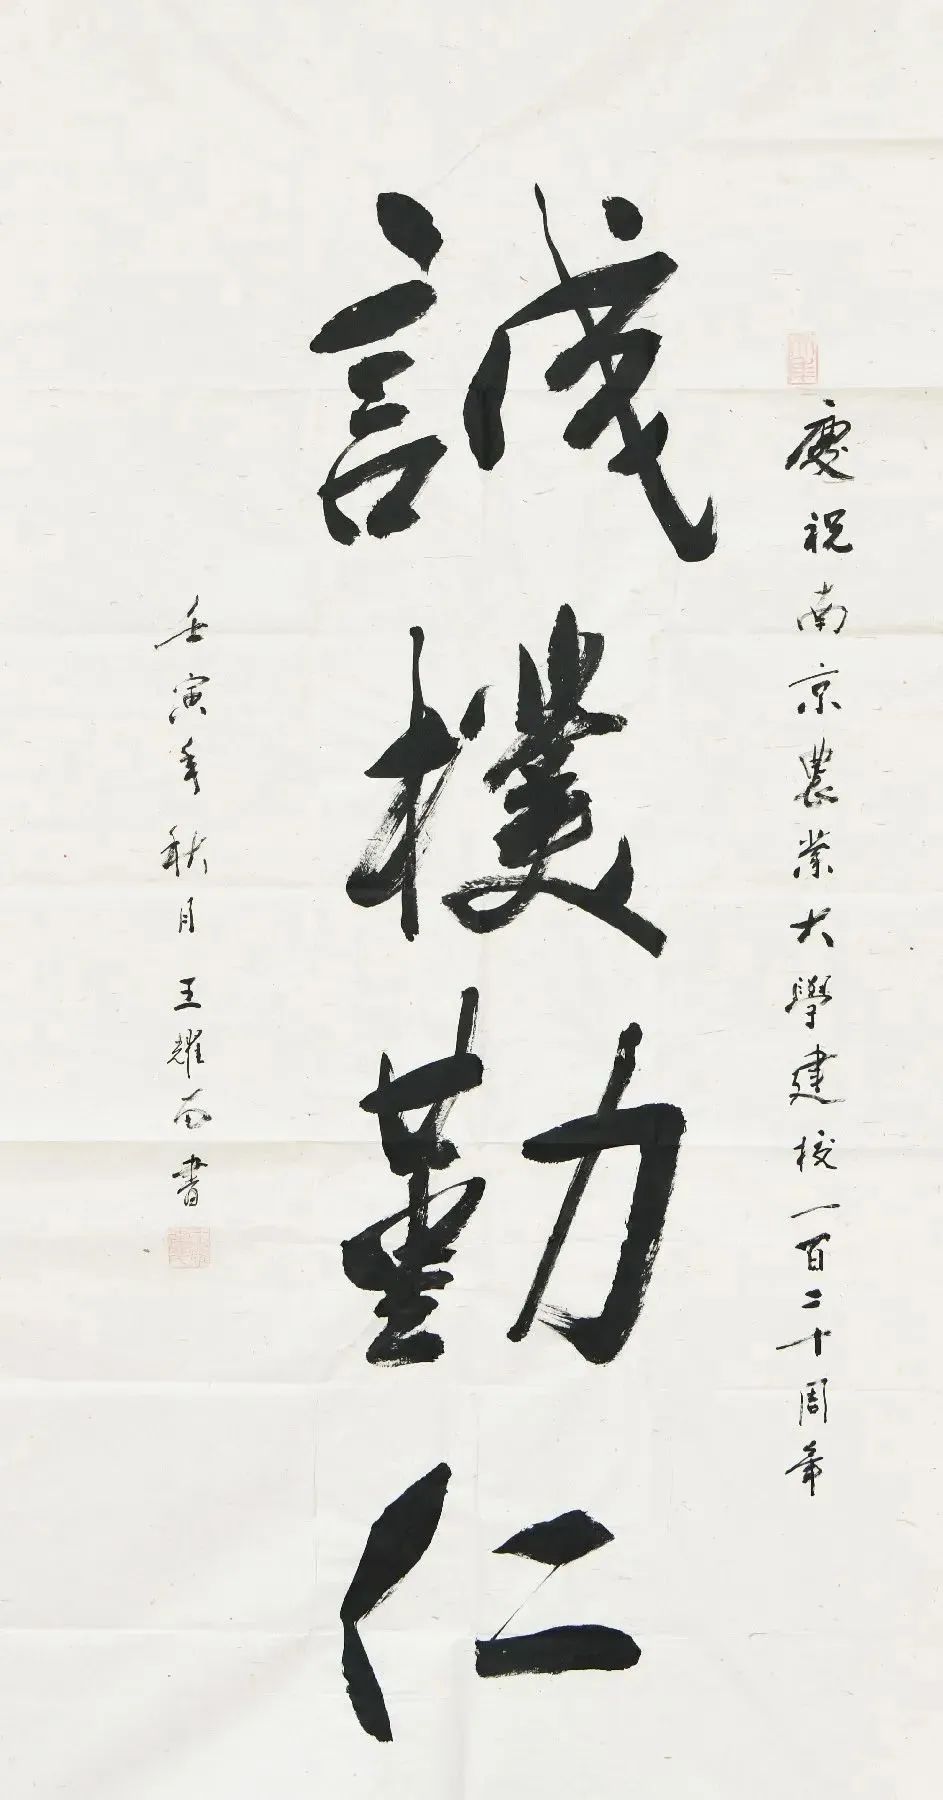 慶祝南京農業大學建校一百二十周年
誠樸勤仁
壬寅年秋月 王耀南書